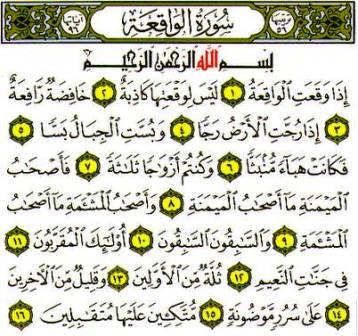 ترتيبها ٥٦ سُورَةُ الوَاقِعَةِ آياتها ٩٦
بِسْمِ اللَّهِ الرَّحْمَٰنِ الرَّحِيمِ
إِذَا وَقَعَتِ الْوَاقِعَةُ ١ لَيْسَ لِوَقْعَتِهَا كَاذِبَةٌ ٢ خَافِضَةٌ رَّافِعَةٌ
٣ إِذَا رُجَّتِ الْأَرْضُ رَجًّا ٤ وَبُسَّتِ الْجِبَالُ بَسًّا ٥
فَكَانَتْ هَبَاءً مُّنبَثًّا ٦ وَكُنتُمْ أَزْوَاجًا ثَلَاثَةً ٧ فَأَصْحَابُ
الْمَيْمَنَةِ مَا أَصْحَابُ الْمَيْمَنَةِ ٨ وَأَصْحَابُ الْمَشْأَمَةِ مَا أَصْحَابُ
الْمَشْأَمَةِ ٩ وَالسَّابِقُونَ السَّابِقُونَ ١٠ أُولَٰئِكَ الْمُقَرَّبُونَ ١١
فِي جَنَّاتِ النَّعِيمِ ١٢ ثُلَّةٌ مِّنَ الْأَوَّلِينَ ١٣ وَقَلِيلٌ مِّنَ الْآخِرِينَ
١٤ عَلَىٰ سُرُرٍ مَّوْضُونَةٍ ١٥ مُّتَّكِئِينَ عَلَيْهَا مُتَقَابِلِينَ ١٦